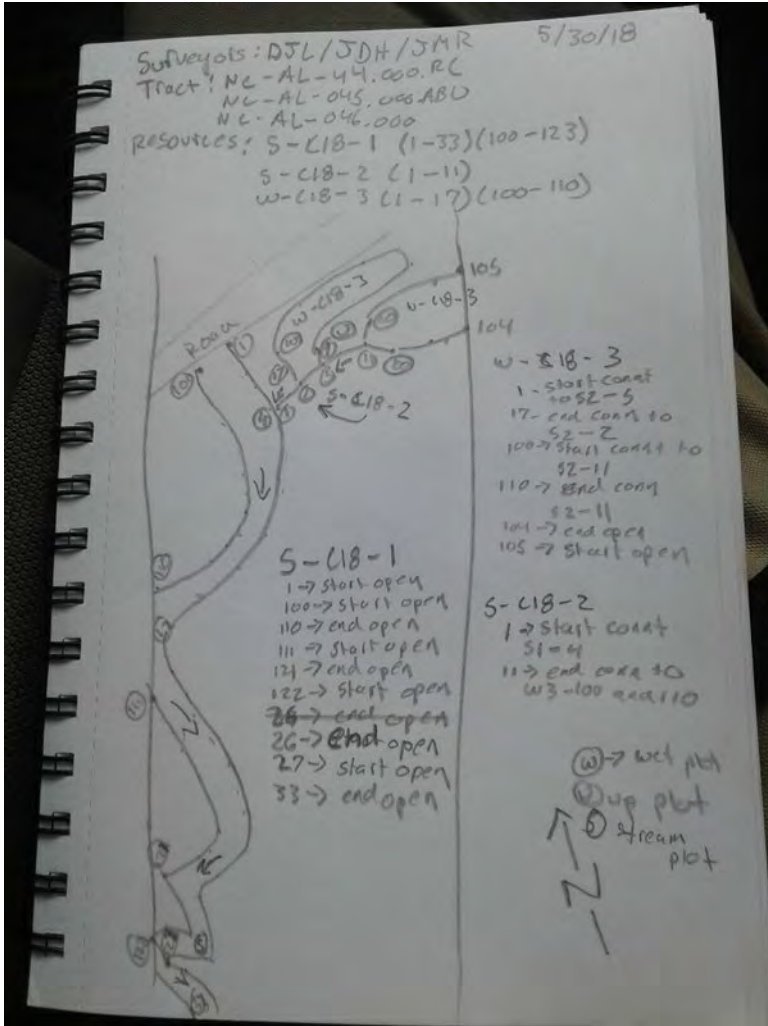 Surveyors: DJL/JDH/JMR 5/30/18
Tract: NC-AL-44.000.RC
NC-AL-045.000.ABU
NC-AL-046.000
Resources: S-C18-1 (1-33)(100-123)
S-C18-2 (1-11)
W-C18-3 (1-17)(100-110)
105
W-C18-3
W-C18-3
104
Road
S-C18-2
W-C18-3
1-start connt
to S2-5
17-end conn to
S2-2
100->start connt to
S2-11
110-> end conn
S2-11
104->end open
105-> start open
S-C18-1
1->start open
100->start open
110->end open
111->start open
121->end open
122->start open
26->end open
26->end open
27->start open
33->end open
S-C18-2
1->start connt
S1-4
11->end conn to
W3-100 and 110
W->wet plot
U up plot
stream
plot
N